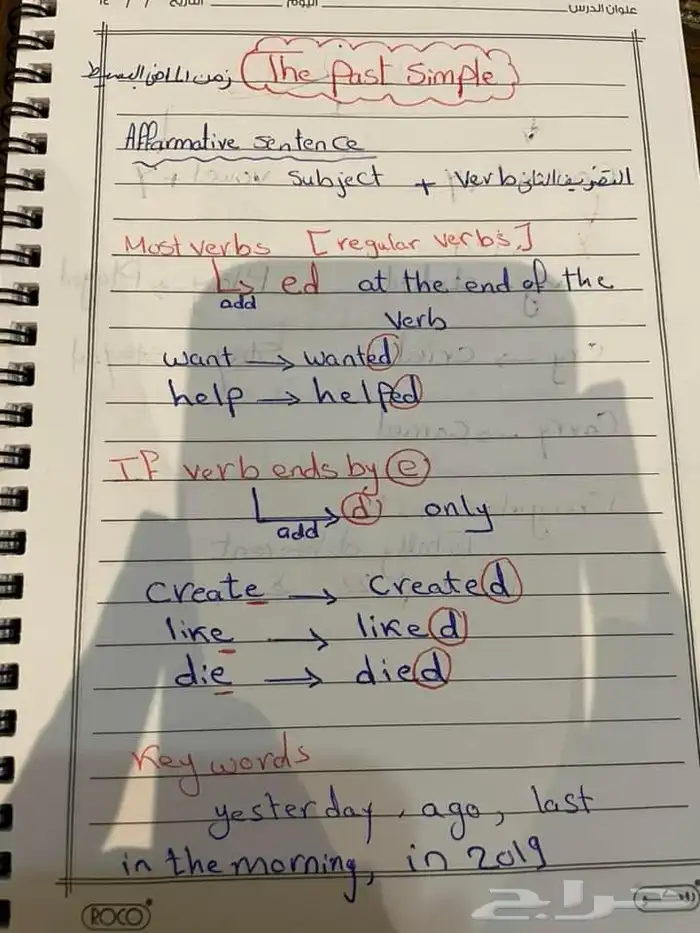 عنوان الدرس اليوم التاريخ / / ١٤
زمن الماضي البسيط (The Past Simple)
Affarmative sentence
Subject + Verb التصريف الثاني
Most verbs [regular verbs.]
add ed at the end of the
verb
want → wanted
help → helped
If verb ends by e
add d only
create → created
like → liked
die → died
Key words
yesterday, ago, last
in the morning, in 2019
ROCO روكو
حراج